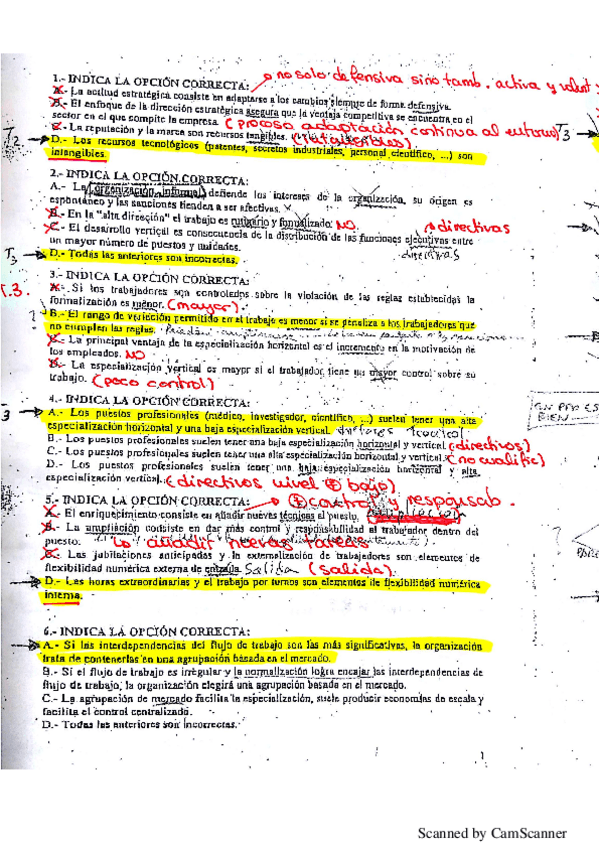 1.- INDICA LA OPCIÓN CORRECTA: no solo defensiva sino tamb. activa y volunt
A.- La actitud estratégica consiste en adaptarse a los cambios siempre de forma defensiva.
B.- El enfoque de la dirección estratégica asegura que la ventaja competitiva se encuentra en el
sector en el que compite la empresa. (proceso adaptación continua al entorno) T3
C.- La reputación y la marca son recursos tangibles. (intangibles)
T.2. D.- Los recursos tecnológicos (patentes, secretos industriales, personal científico, ...) son
intangibles.
2.- INDICA LA OPCIÓN CORRECTA:
A.- La organización informal defiende los intereses de la organización, su origen es
espontáneo y las sanciones tienden a ser afectivas.
B.- En la "alta dirección" el trabajo es rutinario y formalizado. NO directivas
C.- El desarrollo vertical es consecuencia de la distribución de las funciones ejecutivas entre
un mayor número de puestos y unidades. directivas
T3 D.- Todas las anteriores son incorrectas.
3.- INDICA LA OPCIÓN CORRECTA:
T.3. A.- Si los trabajadores son controlados sobre la violación de las reglas establecidas la
formalización es menor. (mayor)
? B.- El rango de variación permitido en el trabajo es menor si se penaliza a los trabajadores que
no cumplen las reglas.
C.- La principal ventaja de la especialización horizontal es el incremento en la motivación de
los empleados. NO
D.- La especialización vertical es mayor si el trabajador tiene un mayor control sobre su
trabajo. (poco control)
4.- INDICA LA OPCIÓN CORRECTA:
3 A.- Los puestos profesionales (médico, investigador, científico, ...) suelen tener una alta
especialización horizontal y una baja especialización vertical.
B.- Los puestos profesionales suelen tener una baja especialización horizontal y vertical. (directivos)
C.- Los puestos profesionales suelen tener una alta especialización horizontal y vertical. (no cualific)
D.- Los puestos profesionales suelen tener una baja especialización horizontal y alta
especialización vertical. (directivos nivel + bajo)
5.- INDICA LA OPCIÓN CORRECTA: + control y responsab.
A.- El enriquecimiento consiste en añadir nuevas técnicas al puesto.
B.- La ampliación consiste en dar más control y responsabilidad al trabajador dentro del
puesto. añadir nuevas tareas
C.- Las jubilaciones anticipadas y la externalización de trabajadores son elementos de
flexibilidad numérica externa de entrada. Salida (salida)
D.- Las horas extraordinarias y el trabajo por turnos son elementos de flexibilidad numérica
interna.
6.- INDICA LA OPCIÓN CORRECTA:
A.- Si las interdependencias del flujo de trabajo son las más significativas, la organización
trata de contenerlas en una agrupación basada en el mercado.
B.- Si el flujo de trabajo es irregular y la normalización logra encajar las interdependencias de
flujo de trabajo, la organización elegirá una agrupación basada en el mercado.
C.- La agrupación de mercado facilita la especialización, suele producir economías de escala y
facilita el control centralizado.
D.- Todas las anteriores son incorrectas.
1
Scanned by CamScanner